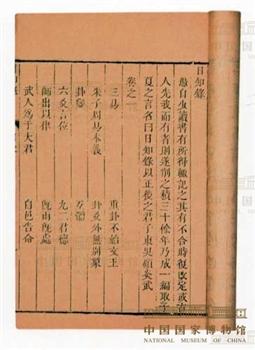 日知錄
愚自少讀書有所得輒記之其有不合時復改定或古
人先我而有者則遂削之積三十餘年乃成一編取子
夏之言名曰日知錄以正後之君子東吳顧炎武
卷之一
三易　重卦不始文王
朱子周易本義　卦爻外無別象
卦變　互體
六爻言位　九二君德
師出以律　既雨既處
武人爲于大君　自邑告命
中国国家博物馆
NATIONAL MUSEUM OF CHINA